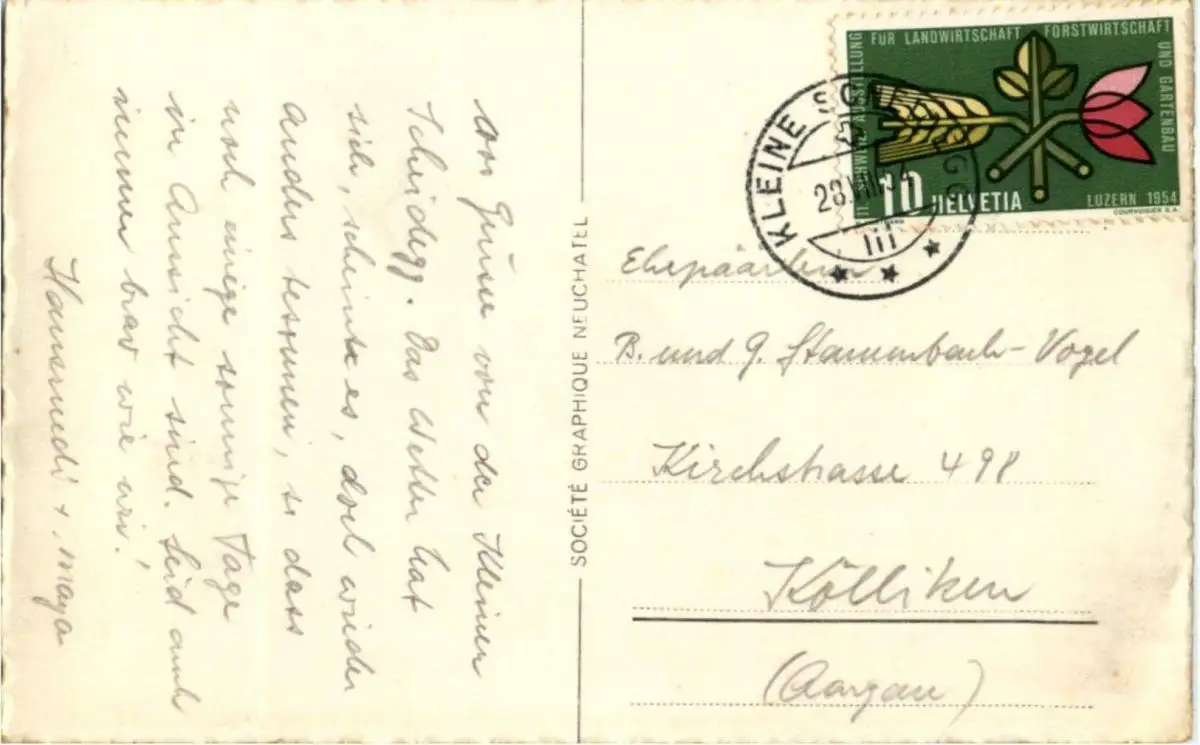 Grüsse von der Kleinen
Scheidegg. Das Wetter hat
sich, scheint es, doch wieder
anders besonnen, so dass
noch einige sonnige Tage
in Aussicht sind. Seid auch
immer brav wie wir!
Hansruedi + Maya
SOCIÉTÉ GRAPHIQUE NEUCHATEL
SCHWEIZ. AUSSTELLUNG FÜR LANDWIRTSCHAFT FORSTWIRTSCHAFT UND GARTENBAU
10 HELVETIA
LUZERN 1954
COURVOISIER S.A.
KLEINE SCHEIDEGG
28.VIII.54
Ehepäärlein
B. und G. Stammbach-Vogel
Kirchstrasse 498
Kölliken
(Aargau)